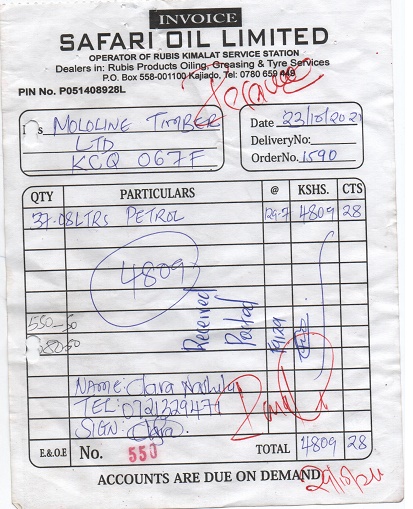 INVOICE
SAFARI OIL LIMITED
OPERATOR OF RUBIS KIMALAT SERVICE STATION
Dealers in: Rubis Products Oiling, Greasing & Tyre Services
P.O. Box 558-001100 Kajiado, Tel: 0780 659 449
PIN No. P051408928L
M/s MOLOLINE TIMBER
LTD
KCQ 067F
Date 23/10/2021
DeliveryNo:
OrderNo. 1590
QTY PARTICULARS @ KSHS. CTS
37.08LTRS PETROL 129.7 4809 28
4809
Received
Posted
550-50
NAME: Clara
TEL: 0721329471
SIGN:
Paid
E.&O.E No. 550 TOTAL 4809 28
ACCOUNTS ARE DUE ON DEMAND